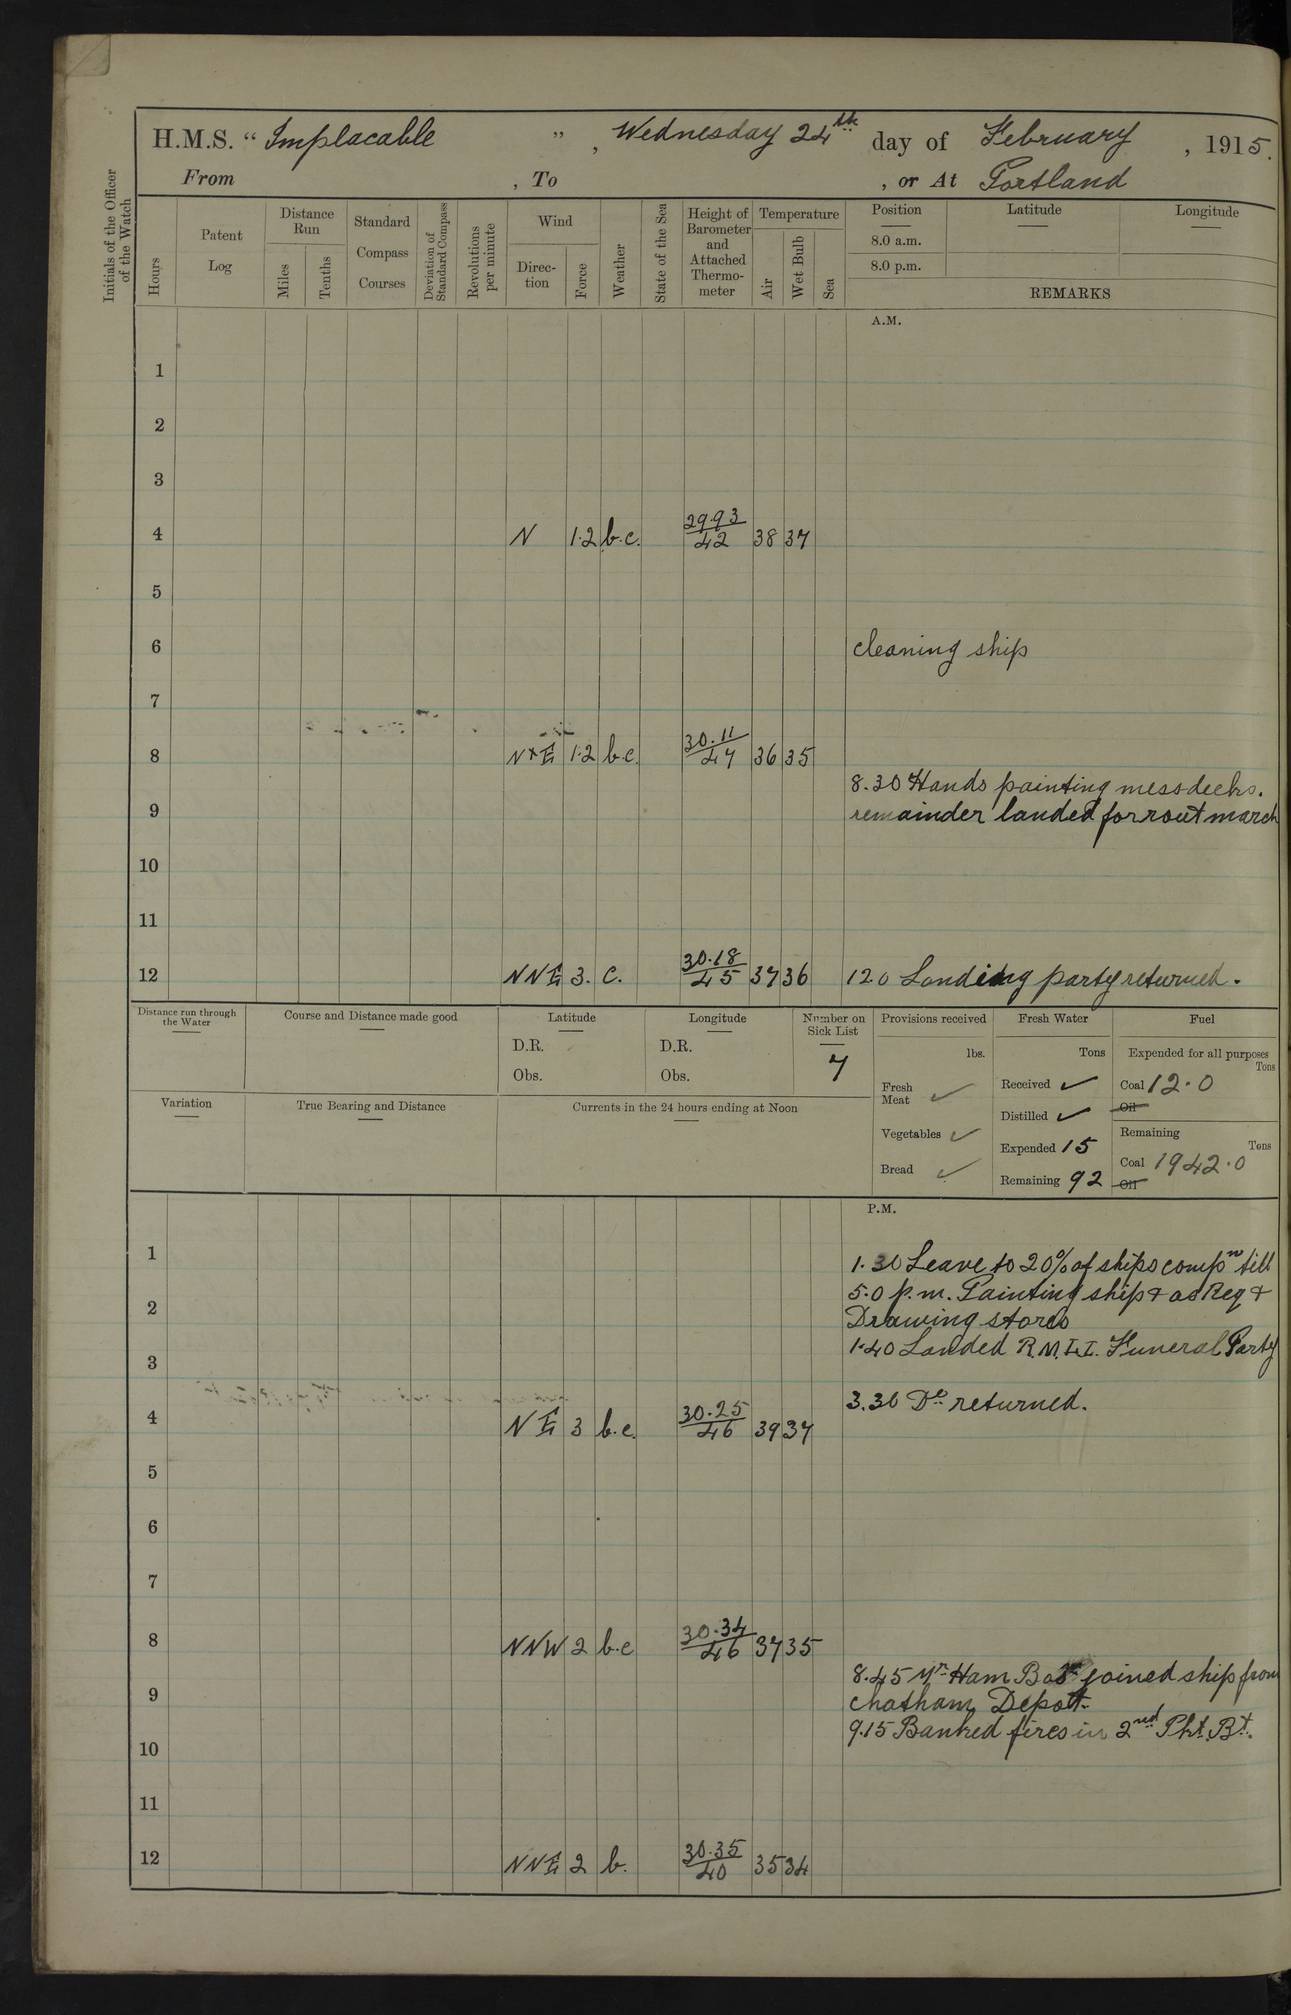 H.M.S. “ Implacable ” , Wednesday 24th day of February , 1915.
From , To , or At Portland
Initials of the Officer of the Watch
Hours
Patent Log
Distance Run
Miles
Tenths
Standard Compass Courses
Deviation of Standard Compass
Revolutions per minute
Wind
Direc-tion
Force
Weather
State of the Sea
Height of Barometer and Attached Thermo-meter
Temperature
Air
Wet Bulb
Sea
Position
8.0 a.m.
8.0 p.m.
Latitude
Longitude
REMARKS
A.M.
1
2
3
4 N 1.2 b.c. 29.93/42 38 37
5
6 cleaning ship
7
8 N×E 1.2 b.c. 30.11/47 36 35
8.30 Hands painting messdecks.
9 remainder landed for rout march
10
11
12 NNE 3. c. 30.18/45 37 36 12.0 Landing party returned.
Distance run through the Water
Course and Distance made good
Latitude
D.R.
Obs.
Longitude
D.R.
Obs.
Number on Sick List
7
Provisions received
lbs.
Fresh Meat ✓
Vegetables ✓
Bread ✓
Fresh Water
Tons
Received ✓
Distilled ✓
Expended 15
Remaining 92
Fuel
Expended for all purposes
Tons
Coal 12.0
Oil
Remaining
Tons
Coal 1942.0
Oil
Variation
True Bearing and Distance
Currents in the 24 hours ending at Noon
P.M.
1 1.30 Leave to 20% of ships compn till
5.0 p.m. Painting ship & as Req &
2 Drawing stores
3 1.40 Landed R.M.L.I. Funeral Party
3.30 Do returned.
4 NE 3 b.c. 30.25/46 39 37
5
6
7
8 NNW 2 b.c 30.34/46 37 35
8.45 Mr Ham joined ship from
9 Chatham Depot.
9.15 Banked fires in 2nd Pkt. Bt.
10
11
12 NNE 2 b. 30.35/40 35 34